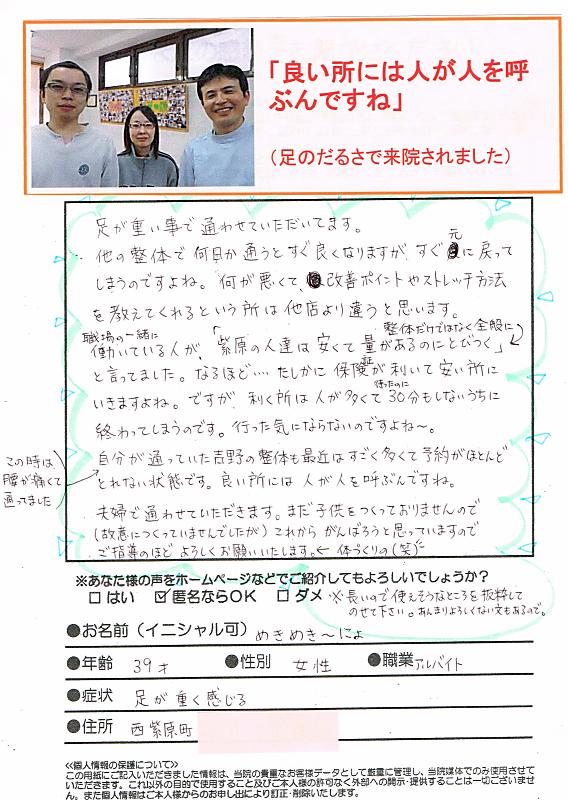 「良い所には人が人を呼
ぶんですね」
（足のだるさで来院されました）
足が重い事で通わせていただいてます。
他の整体で何日か通うとすぐ良くなりますが、すぐ元に戻って
しまうのですよね。何が悪くて、改善ポイントやストレッチ方法
を教えてくれるという所は他店より違うと思います。
職場の一緒に
整体だけではなく全般に
働いている人が、「紫原の人達は安くて量があるのにとびつく」
と言ってました。なるほど…たしかに保険証が利いて安い所に
いきますよね。ですが、利く所は人が多くて待ったのに30分もしないうちに
終わってしまうのです。行った気にならないのですよね〜。
自分が通っていた吉野の整体も最近はすごく多くて予約がほとんど
とれない状態です。良い所には人が人を呼ぶんですね。
この時は
腰が痛くて
通ってました
夫婦で通わせていただきます。まだ子供をつくっておりませんので
(故意につくっていませんでしたが)これからがんばろうと思っていますので
ご指導のほどよろしくお願いいたします。← 体づくりの(笑)
※あなた様の声をホームページなどでご紹介してもよろしいでしょうか？
□ はい ☑ 匿名ならOK □ ダメ ※長いので使えそうなところを抜粋して
のせて下さい。あんまりよろしくない文もあるので。
●お名前（イニシャル可） めきめき〜にょ
●年齢 39才 ●性別 女性 ●職業 アルバイト
●症状 足が重く感じる
●住所 西紫原町
≪個人情報の保護について≫
この用紙にご記入いただきました情報は、当院の貴重なお客様データとして厳重に管理し、当院媒体でのみ使用させて
いただきます。これ以外の目的で使用すること及びご本人様の許可なく外部への開示・提供することは一切ございませ
ん。また個人情報はご本人様からのお申し出により訂正・削除いたします。